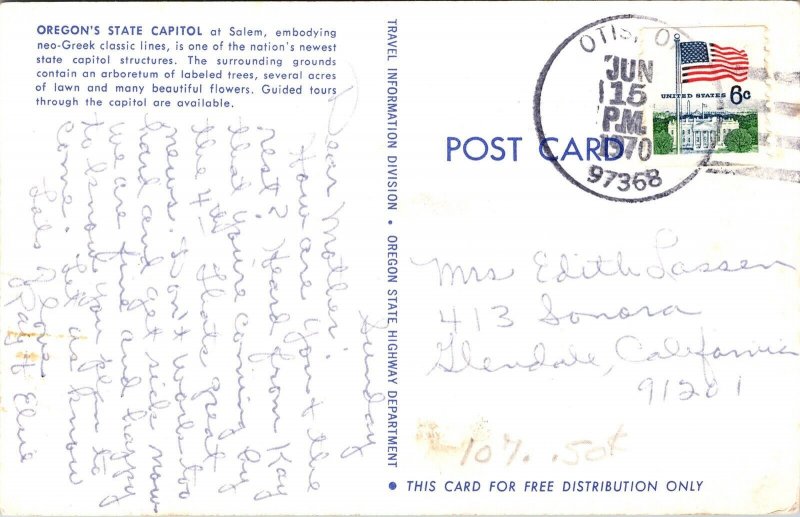 OREGON'S STATE CAPITOL at Salem, embodying
neo-Greek classic lines, is one of the nation's newest
state capitol structures. The surrounding grounds
contain an arboretum of labeled trees, several acres
of lawn and many beautiful flowers. Guided tours
through the capitol are available.
Sunday
Dear Mother:
How are you & the
rest? Heard from Kay
that you're coming by
the 4th. thats great
news. Don't work too
hard and get sick now
We are fine and happy
to know you plan to
come. Let us know
Lots of love
Ray & Elsie
TRAVEL INFORMATION DIVISION • OREGON STATE HIGHWAY DEPARTMENT
OTIS, OR
JUN
15
P.M.
1970
97368
UNITED STATES 6c
POST CARD
Mrs Edith Lassen
413 Sonora
Glendale, California
91201
10%. .50
• THIS CARD FOR FREE DISTRIBUTION ONLY